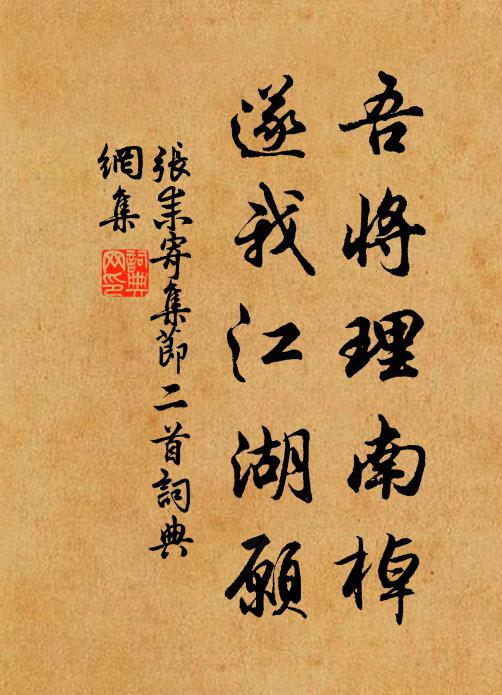 吾將理南棹
遂我江湖願
張耒寄集節二首詞典
網集
詞典網印